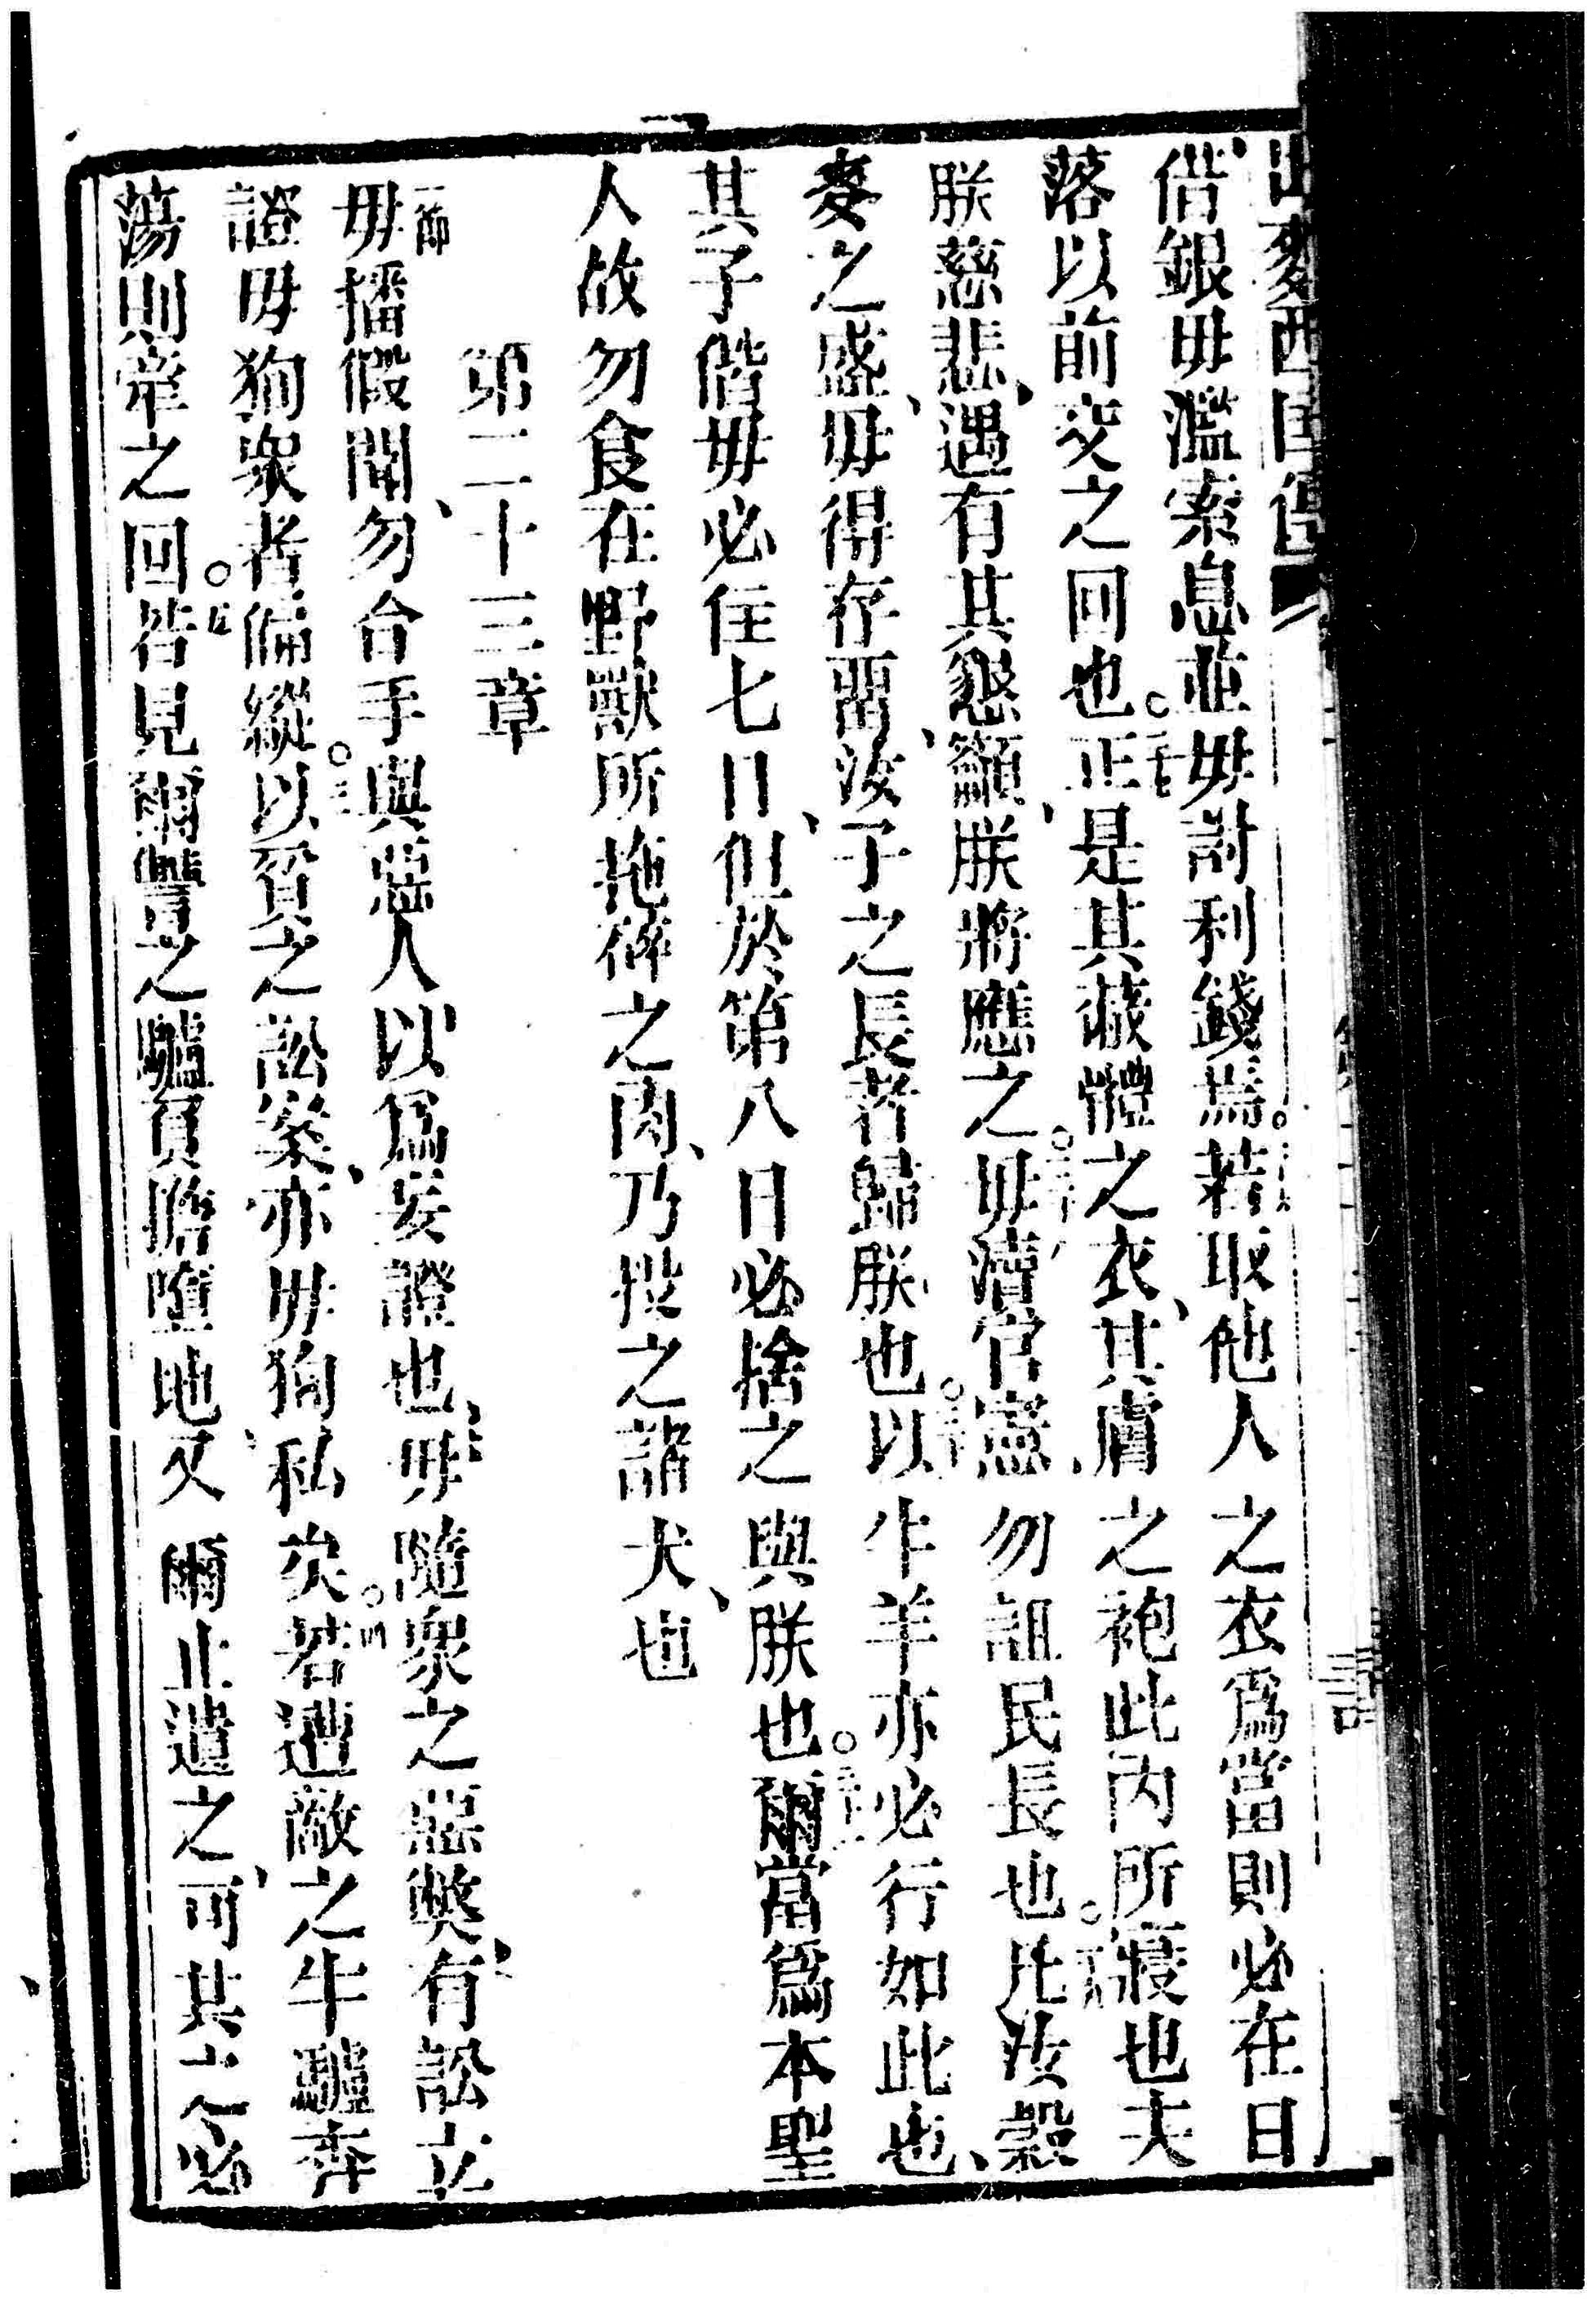 出麥西國傳
借銀毋濫索息並毋討利錢焉○若取他人之衣爲當則必在日
落以前交之回也○二十七正是其蔽體之衣、其膚之袍此內所寢也夫
朕慈悲、遇有其懇籲、朕將應之○毋瀆官憲、勿詛民長也○凡汝穀
麥之盛、毋得存畱、汝子之長者歸朕也○以牛羊亦必行如此也、
其子偕毋必住七日、但於第八日必捨之與朕也○爾當爲本聖
人故勿食在野獸所拖碎之肉、乃投之諸犬、也
第二十三章
一節
毋播假聞、勿合手與惡人以爲妄證也、毋隨衆之惡獘、有訟立
證毋狥衆者偏縱○三以貧之訟案、亦毋狥私矣○四若遭敵之牛驢奔
蕩則牽之回○五若見爾讐之驢負擔墮地、又爾止遣之、可其之必